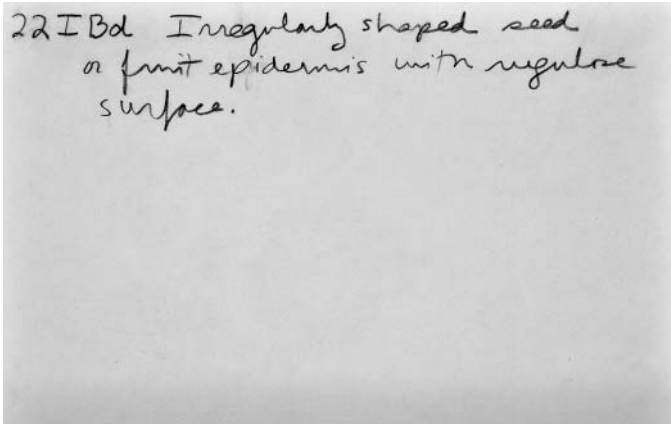 22IBd Irregularly shaped seed
or fruit epidermis with rugulose
surface.